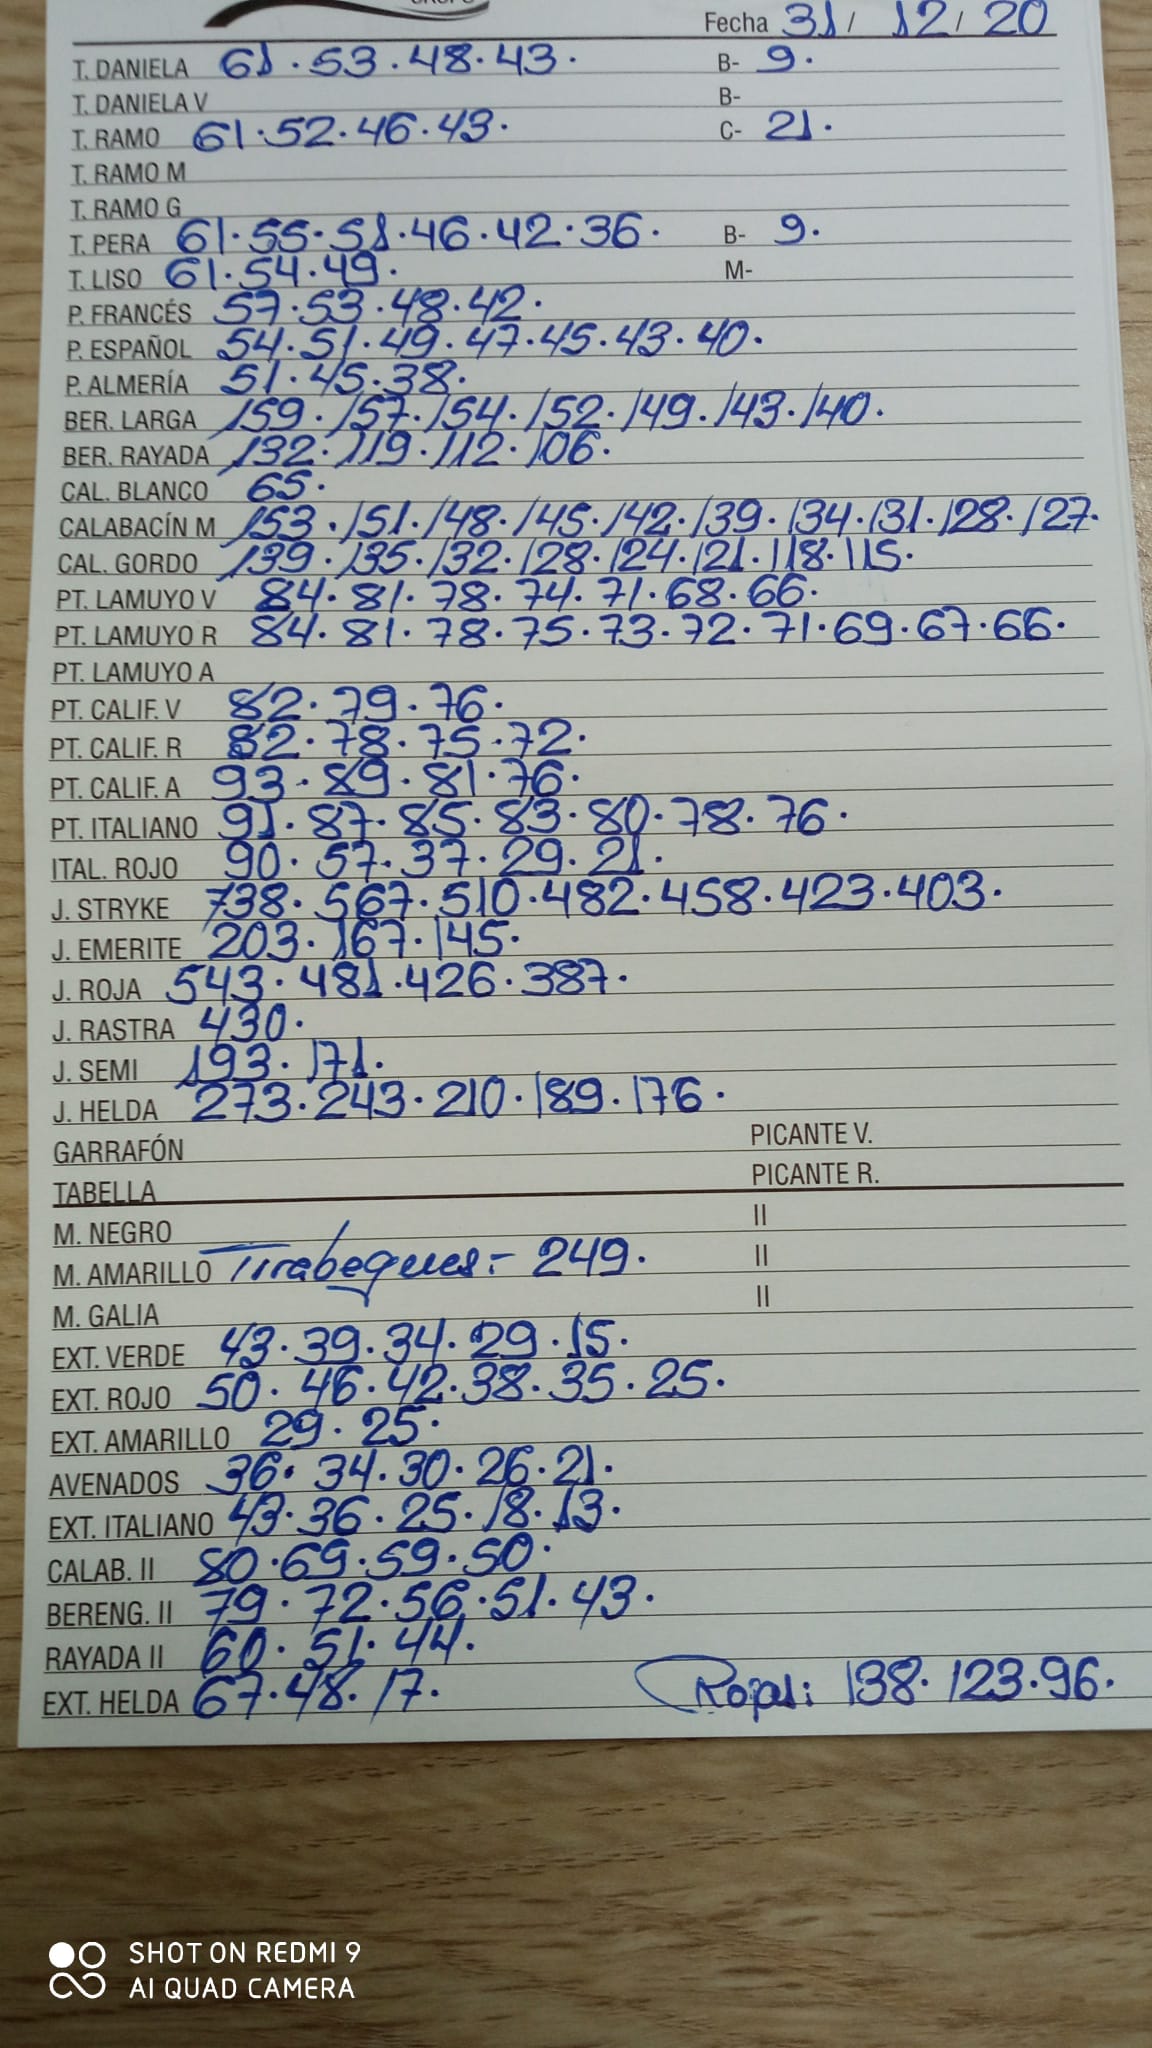 Fecha 31 / 12 / 20
T. DANIELA 61 . 53 . 48 . 43 . B- 9.
T. DANIELA V B-
T. RAMO 61 . 52 . 46 . 43 . C- 21.
T. RAMO M
T. RAMO G
T. PERA 61 . 55 . 51 . 46 . 42 . 36 . B- 9.
T. LISO 61 . 54 . 49 . M-
P. FRANCÉS 57 . 53 . 48 . 42 .
P. ESPAÑOL 54 . 51 . 49 . 47 . 45 . 43 . 40 .
P. ALMERÍA 51 . 45 . 38 .
BER. LARGA 159 . 157 . 154 . 152 . 149 . 143 . 140 .
BER. RAYADA 132 . 119 . 112 . 106 .
CAL. BLANCO 65 .
CALABACÍN M 153 . 151 . 148 . 145 . 142 . 139 . 134 . 131 . 128 . 127 .
CAL. GORDO 139 . 135 . 132 . 128 . 124 . 121 . 118 . 115 .
PT. LAMUYO V 84 . 81 . 78 . 74 . 71 . 68 . 66 .
PT. LAMUYO R 84 . 81 . 78 . 75 . 73 . 72 . 71 . 69 . 67 . 66 .
PT. LAMUYO A
PT. CALIF. V 82 . 79 . 76 .
PT. CALIF. R 82 . 78 . 75 . 72 .
PT. CALIF. A 93 . 89 . 81 . 76 .
PT. ITALIANO 91 . 87 . 85 . 83 . 80 . 78 . 76 .
ITAL. ROJO 90 . 57 . 37 . 29 . 21 .
J. STRYKE 738 . 567 . 510 . 482 . 458 . 423 . 403 .
J. EMERITE 203 . 167 . 145 .
J. ROJA 543 . 481 . 426 . 387 .
J. RASTRA 430 .
J. SEMI 193 . 171 .
J. HELDA 273 . 243 . 210 . 189 . 176 .
GARRAFÓN PICANTE V.
TABELLA PICANTE R.
M. NEGRO II
M. AMARILLO Tirabeques:- 249 . II
M. GALIA II
EXT. VERDE 43 . 39 . 34 . 29 . 15 .
EXT. ROJO 50 . 46 . 42 . 38 . 35 . 25 .
EXT. AMARILLO 29 . 25 .
AVENADOS 36 . 34 . 30 . 26 . 21 .
EXT. ITALIANO 43 . 36 . 25 . 18 . 13 .
CALAB. II 80 . 69 . 59 . 50 .
BERENG. II 79 . 72 . 56 . 51 . 43 .
RAYADA II 60 . 51 . 44 .
EXT. HELDA 67 . 48 . 17 . Rojas: 138 . 123 . 96 .
SHOT ON REDMI 9
AI QUAD CAMERA